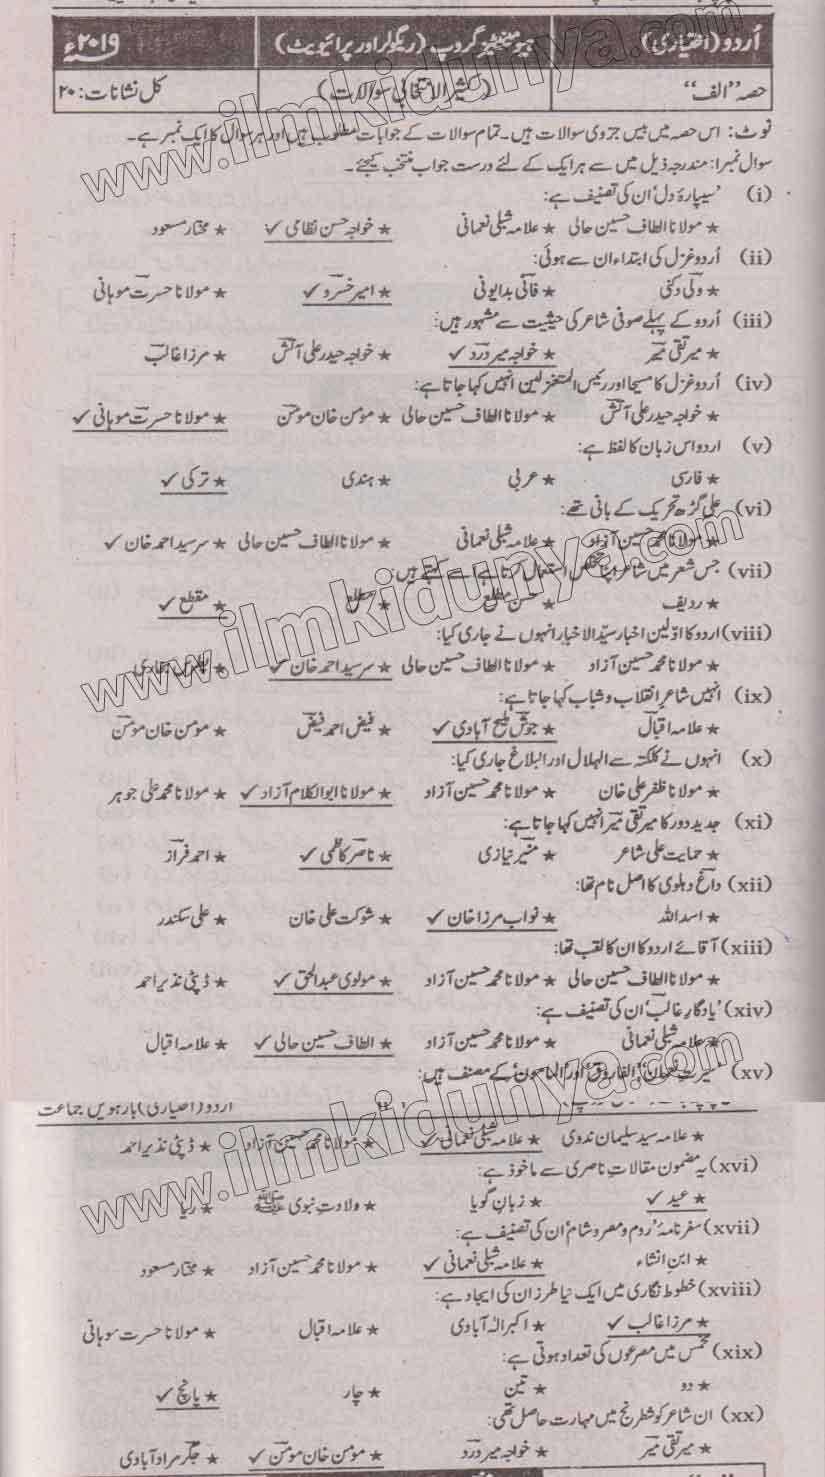 اُردو (اختیاری) ہیومینٹیز گروپ (ریگولر اور پرائیویٹ) ۲۰۱۹ء
حصہ "الف" (کثیر الامتخابی سوالات) کل نشانات: ۲۰
نوٹ: اس حصہ میں بیس جزوی سوالات ہیں۔ تمام سوالات کے جوابات مطلوب ہیں اور ہر سوال کا ایک نمبر ہے۔
سوال نمبر۱: مندرجہ ذیل میں سے ہر ایک کے لئے درست جواب منتخب کیجئے۔
(i) 'سیپارۂ دل' ان کی تصنیف ہے:
★ مولانا الطاف حسین حالی ★ علامہ شبلی نعمانی ★ خواجہ حسن نظامی ✓ ★ مختار مسعود
(ii) اُردو غزل کی ابتداء ان سے ہوئی:
★ ولی دکنی ★ فانی بدایونی ★ امیر خسرو ✓ ★ مولانا حسرت موہانی
(iii) اُردو کے پہلے صوفی شاعر کی حیثیت سے مشہور ہیں:
★ میر تقی میر ★ خواجہ میر درد ✓ ★ خواجہ حیدر علی آتش ★ مرزا غالب
(iv) اُردو غزل کا مسیحا اور رئیس المتغزلین انہیں کہا جاتا ہے:
★ خواجہ حیدر علی آتش ★ مولانا الطاف حسین حالی ★ مومن خان مومن ★ مولانا حسرت موہانی ✓
(v) اردو اس زبان کا لفظ ہے:
★ فارسی ★ عربی ★ ہندی ★ ترکی ✓
(vi) علی گڑھ تحریک کے بانی تھے:
★ مولانا محمد حسین آزاد ★ علامہ شبلی نعمانی ★ مولانا الطاف حسین حالی ★ سر سید احمد خان ✓
(vii) جس شعر میں شاعر اپنا تخلص استعمال کرتا ہے اسے کہتے ہیں:
★ ردیف ★ حسن مطلع ★ مطلع ★ مقطع ✓
(viii) اردو کا اوّلین اخبار سیّد الاخبار انہوں نے جاری کیا:
★ مولانا محمد حسین آزاد ★ مولانا الطاف حسین حالی ★ سر سید احمد خان ✓ ★
(ix) انہیں شاعرِ انقلاب و شباب کہا جاتا ہے:
★ علامہ اقبال ★ جوش ملیح آبادی ✓ ★ فیض احمد فیض ★ مومن خان مومن
(x) انہوں نے کلکتہ سے الہلال اور البلاغ جاری کیا:
★ مولانا ظفر علی خان ★ مولانا محمد حسین آزاد ★ مولانا ابوالکلام آزاد ✓ ★ مولانا محمد علی جوہر
(xi) جدید دور کا میر تقی میر انہیں کہا جاتا ہے:
★ حمایت علی شاعر ★ منیر نیازی ★ ناصر کاظمی ✓ ★ احمد فراز
(xii) داغ دہلوی کا اصل نام تھا:
★ اسد اللہ ★ نواب مرزا خان ✓ ★ شوکت علی خان ★ علی سکندر
(xiii) آقائے اردو کا ان کا لقب تھا:
★ مولانا الطاف حسین حالی ★ مولانا محمد حسین آزاد ★ مولوی عبدالحق ✓ ★ ڈپٹی نذیر احمد
(xiv) 'یادگارِ غالب' ان کی تصنیف ہے:
★ علامہ شبلی نعمانی ★ مولانا محمد حسین آزاد ★ الطاف حسین حالی ✓ ★ علامہ اقبال
(xv) 'سیرت نعمان' 'الفاروق' اور 'المامون' کے مصنف ہیں:
اردو (اختیاری) بارہویں جماعت
★ علامہ سید سلیمان ندوی ★ علامہ شبلی نعمانی ✓ ★ مولانا محمد حسین آزاد ★ ڈپٹی نذیر احمد
(xvi) یہ مضمون مقالاتِ ناصری سے ماخوذ ہے:
★ عید ✓ ★ زبانِ گویا ★ ولادتِ نبوی ﷺ ★ ریا
(xvii) سفر نامۂ 'روم و مصر و شام' ان کی تصنیف ہے:
★ ابن انشاء ★ علامہ شبلی نعمانی ✓ ★ مولانا محمد حسین آزاد ★ مختار مسعود
(xviii) خطوط نگاری میں ایک نیا طرز ان کی ایجاد ہے:
★ مرزا غالب ✓ ★ اکبر الٰہ آبادی ★ علامہ اقبال ★ مولانا حسرت موہانی
(xix) مخمس میں مصرعوں کی تعداد ہوتی ہے:
★ دو ★ تین ★ چار ★ پانچ ✓
(xx) ان شاعر کو شطرنج میں مہارت حاصل تھی:
★ میر تقی میر ★ خواجہ میر درد ★ مومن خان مومن ✓ ★ جگر مراد آبادی
www.ilmkidunya.com
www.ilmkidunya.com
www.ilmkidunya.com